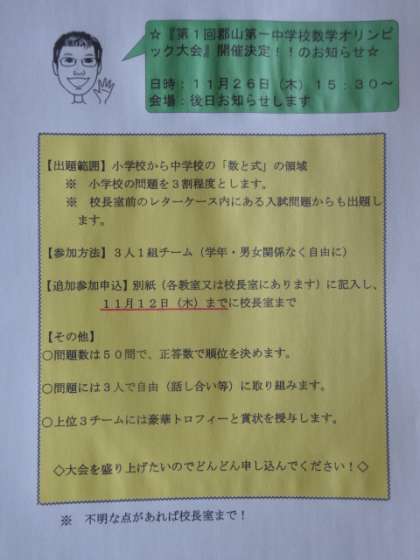 ☆『第１回郡山第一中学校数学オリンピ
ック大会』開催決定！！のお知らせ☆
日時：１１月２６日（木）１５：３０～
会場：後日お知らせします
【出題範囲】小学校から中学校の「数と式」の領域
※　小学校の問題を３割程度とします。
※　校長室前のレターケース内にある入試問題からも出題し
ます。
【参加方法】３人１組チーム（学年・男女関係なく自由に）
【追加参加申込】別紙（各教室又は校長室にあります）に記入し、
１１月１２日（木）までに校長室まで
【その他】
○問題数は５０問で、正答数で順位を決めます。
○問題には３人で自由（話し合い等）に取り組みます。
○上位３チームには豪華トロフィーと賞状を授与します。
◇大会を盛り上げたいのでどんどん申し込んでください！◇
※　不明な点があれば校長室まで！